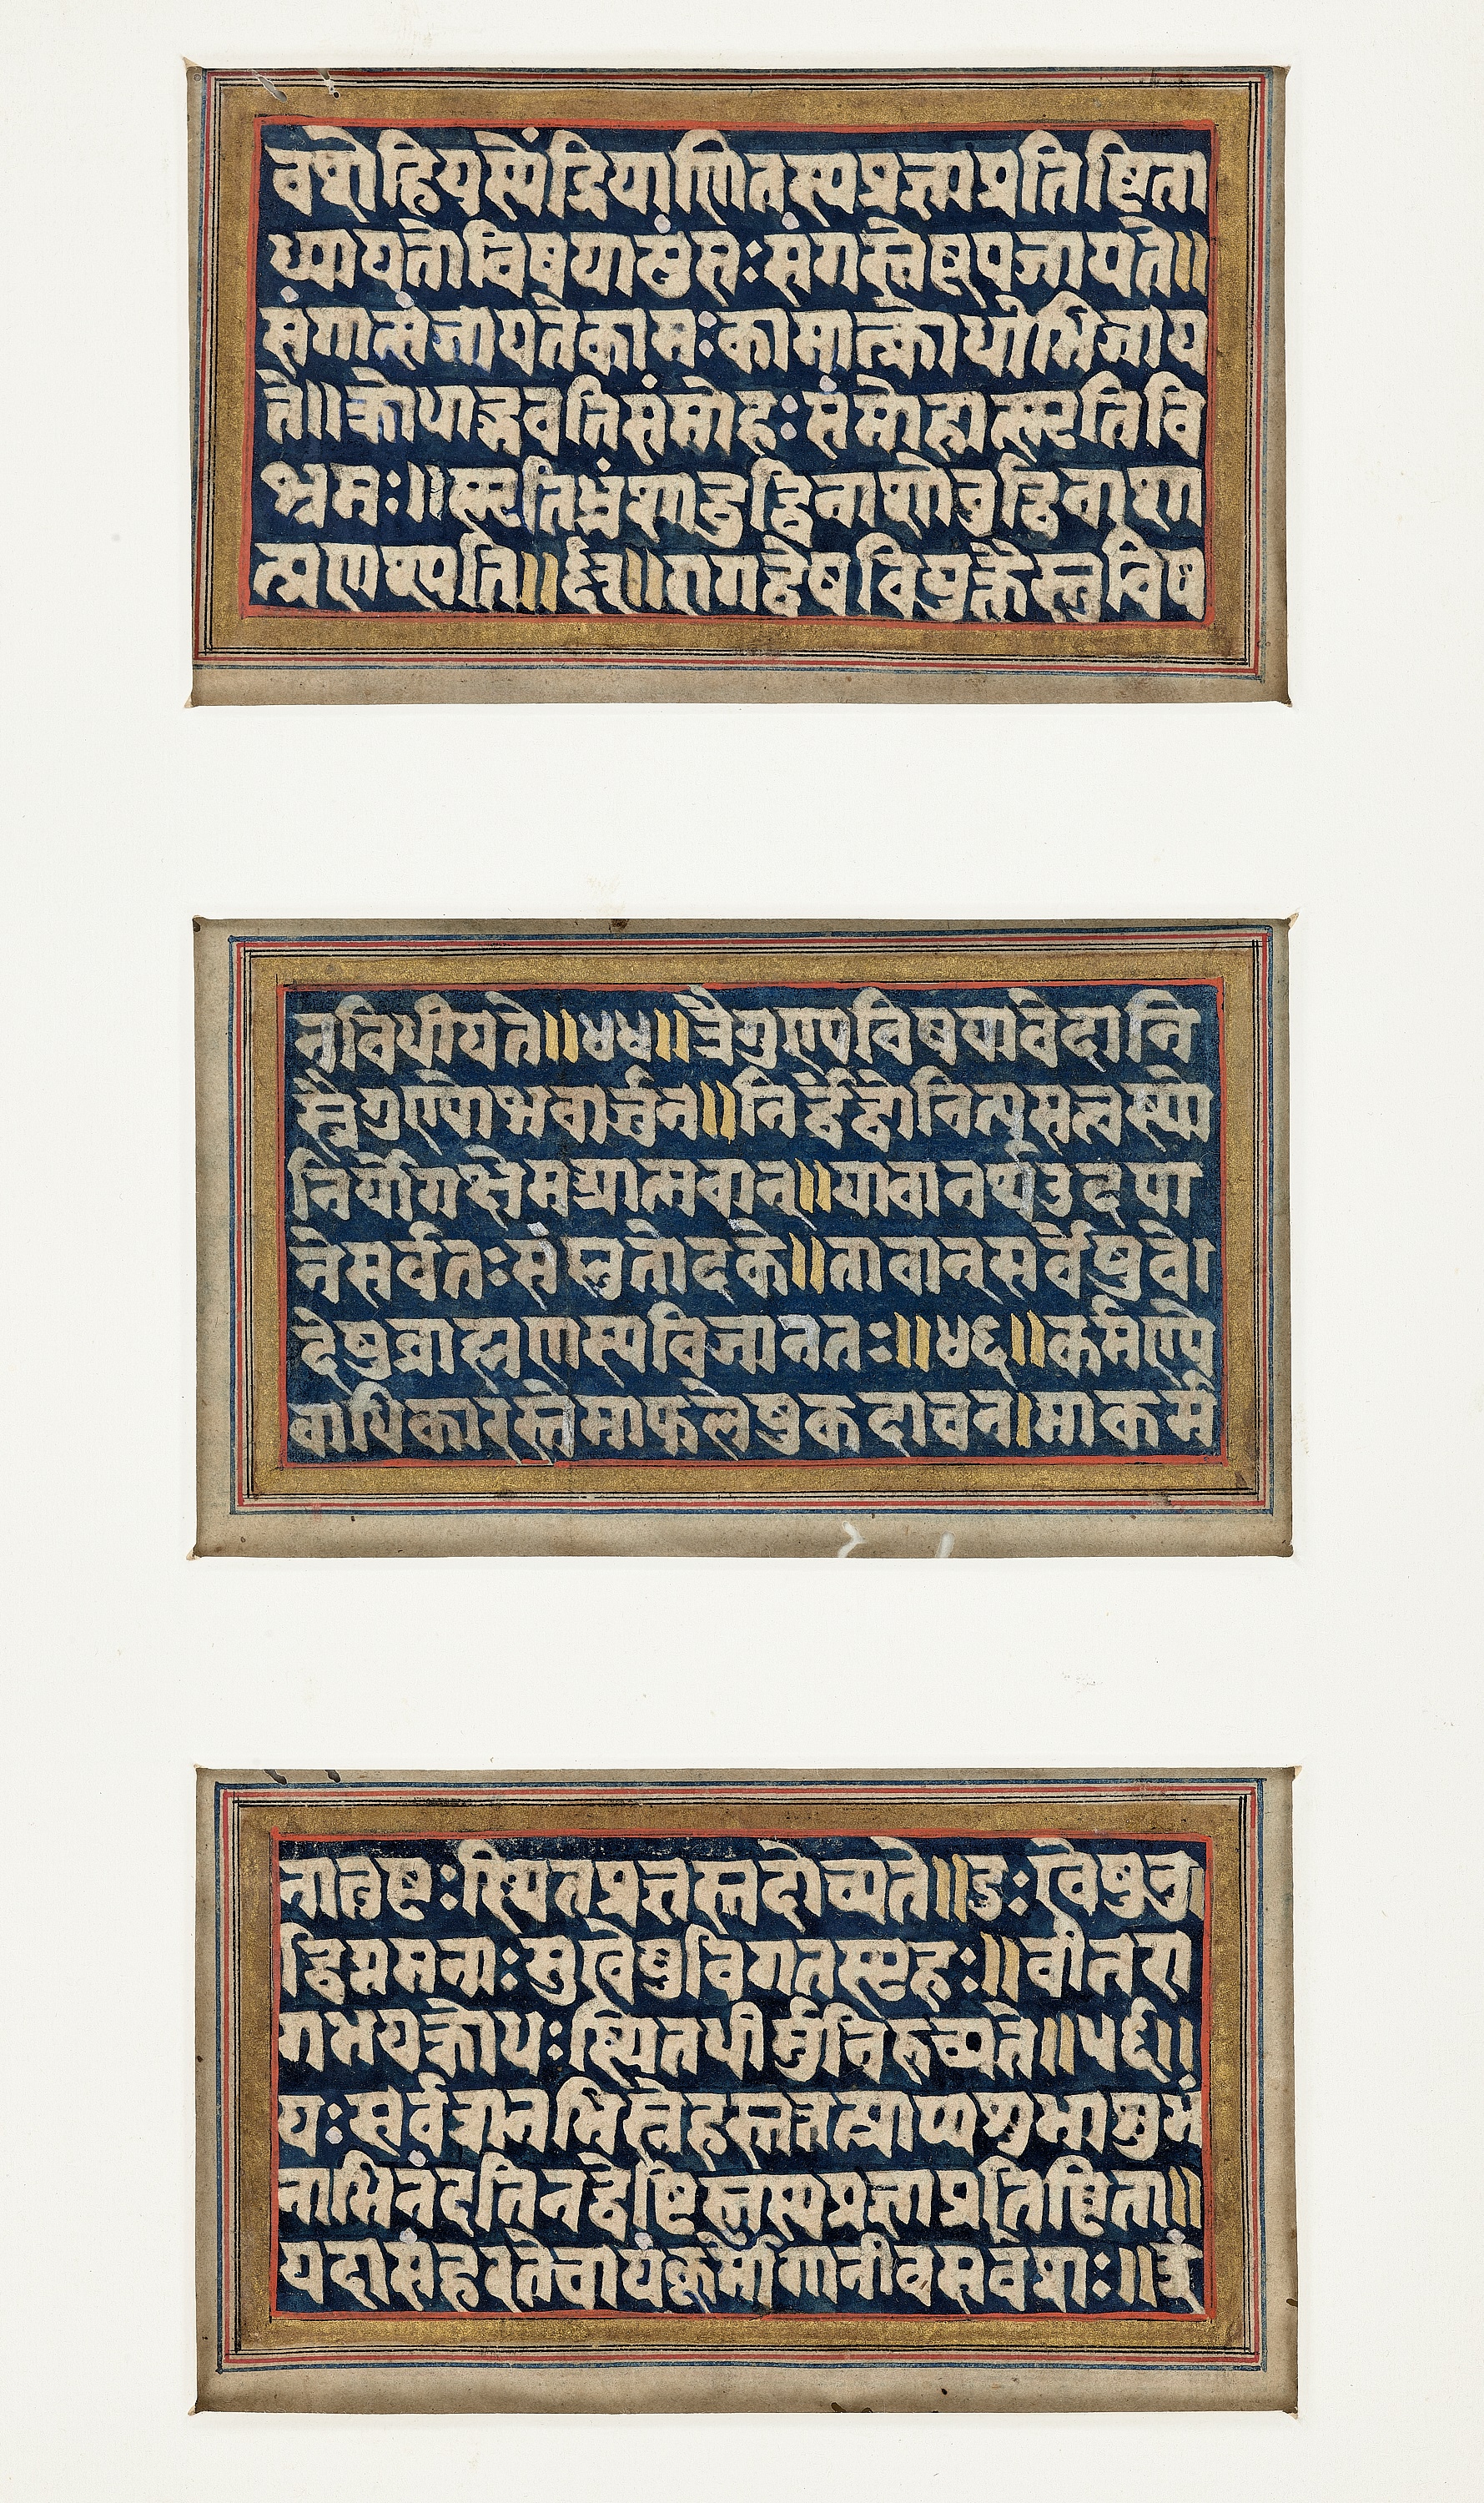 वशेहियस्येंद्रियाणितस्यप्रज्ञाप्रतिष्ठिता
ध्यायतोविषयान्पुंसः संगस्तेषूपजायते॥
संगात्संजायतेकामः कामात्क्रोधोभिजाय
ते॥क्रोधाद्भवतिसंमोहः संमोहात्स्मृतिवि
भ्रमः॥स्मृतिभ्रंशाद्बुद्धिनाशोबुद्धिनाशा
त्प्रणश्यति॥६३॥रागद्वेषवियुक्तैस्तुविष
नविधीयते॥४४॥त्रैगुण्यविषयावेदानि
स्त्रैगुण्योभवार्जुन॥निर्द्वंद्वोनित्यसत्वस्थो
निर्योगक्षेमआत्मवान्॥यावानर्थउदपा
नेसर्वतः संप्लुतोदके॥तावान्सर्वेषुवे।
देषुब्राह्मणस्यविजानतः॥४६॥कर्मण्ये
वाधिकारस्तेमाफलेषुकदाचन।माकर्म
नातुष्टः स्थितप्रज्ञस्तदोच्यते॥दुः खेषुनु
द्विग्नमनाः सुखेषुविगतस्पृहः॥वीतरा
गभयक्रोधः स्थितधीर्मुनिरुच्यते॥५६॥
यः सर्वत्रानभिस्नेहस्तत्तत्प्राप्यशुभाशुभं
नाभिनंदतिनद्वेष्टितस्यप्रज्ञाप्रतिष्ठिता॥
यदासंहरतेचायंकूर्मोगानीवसर्वशः॥इं